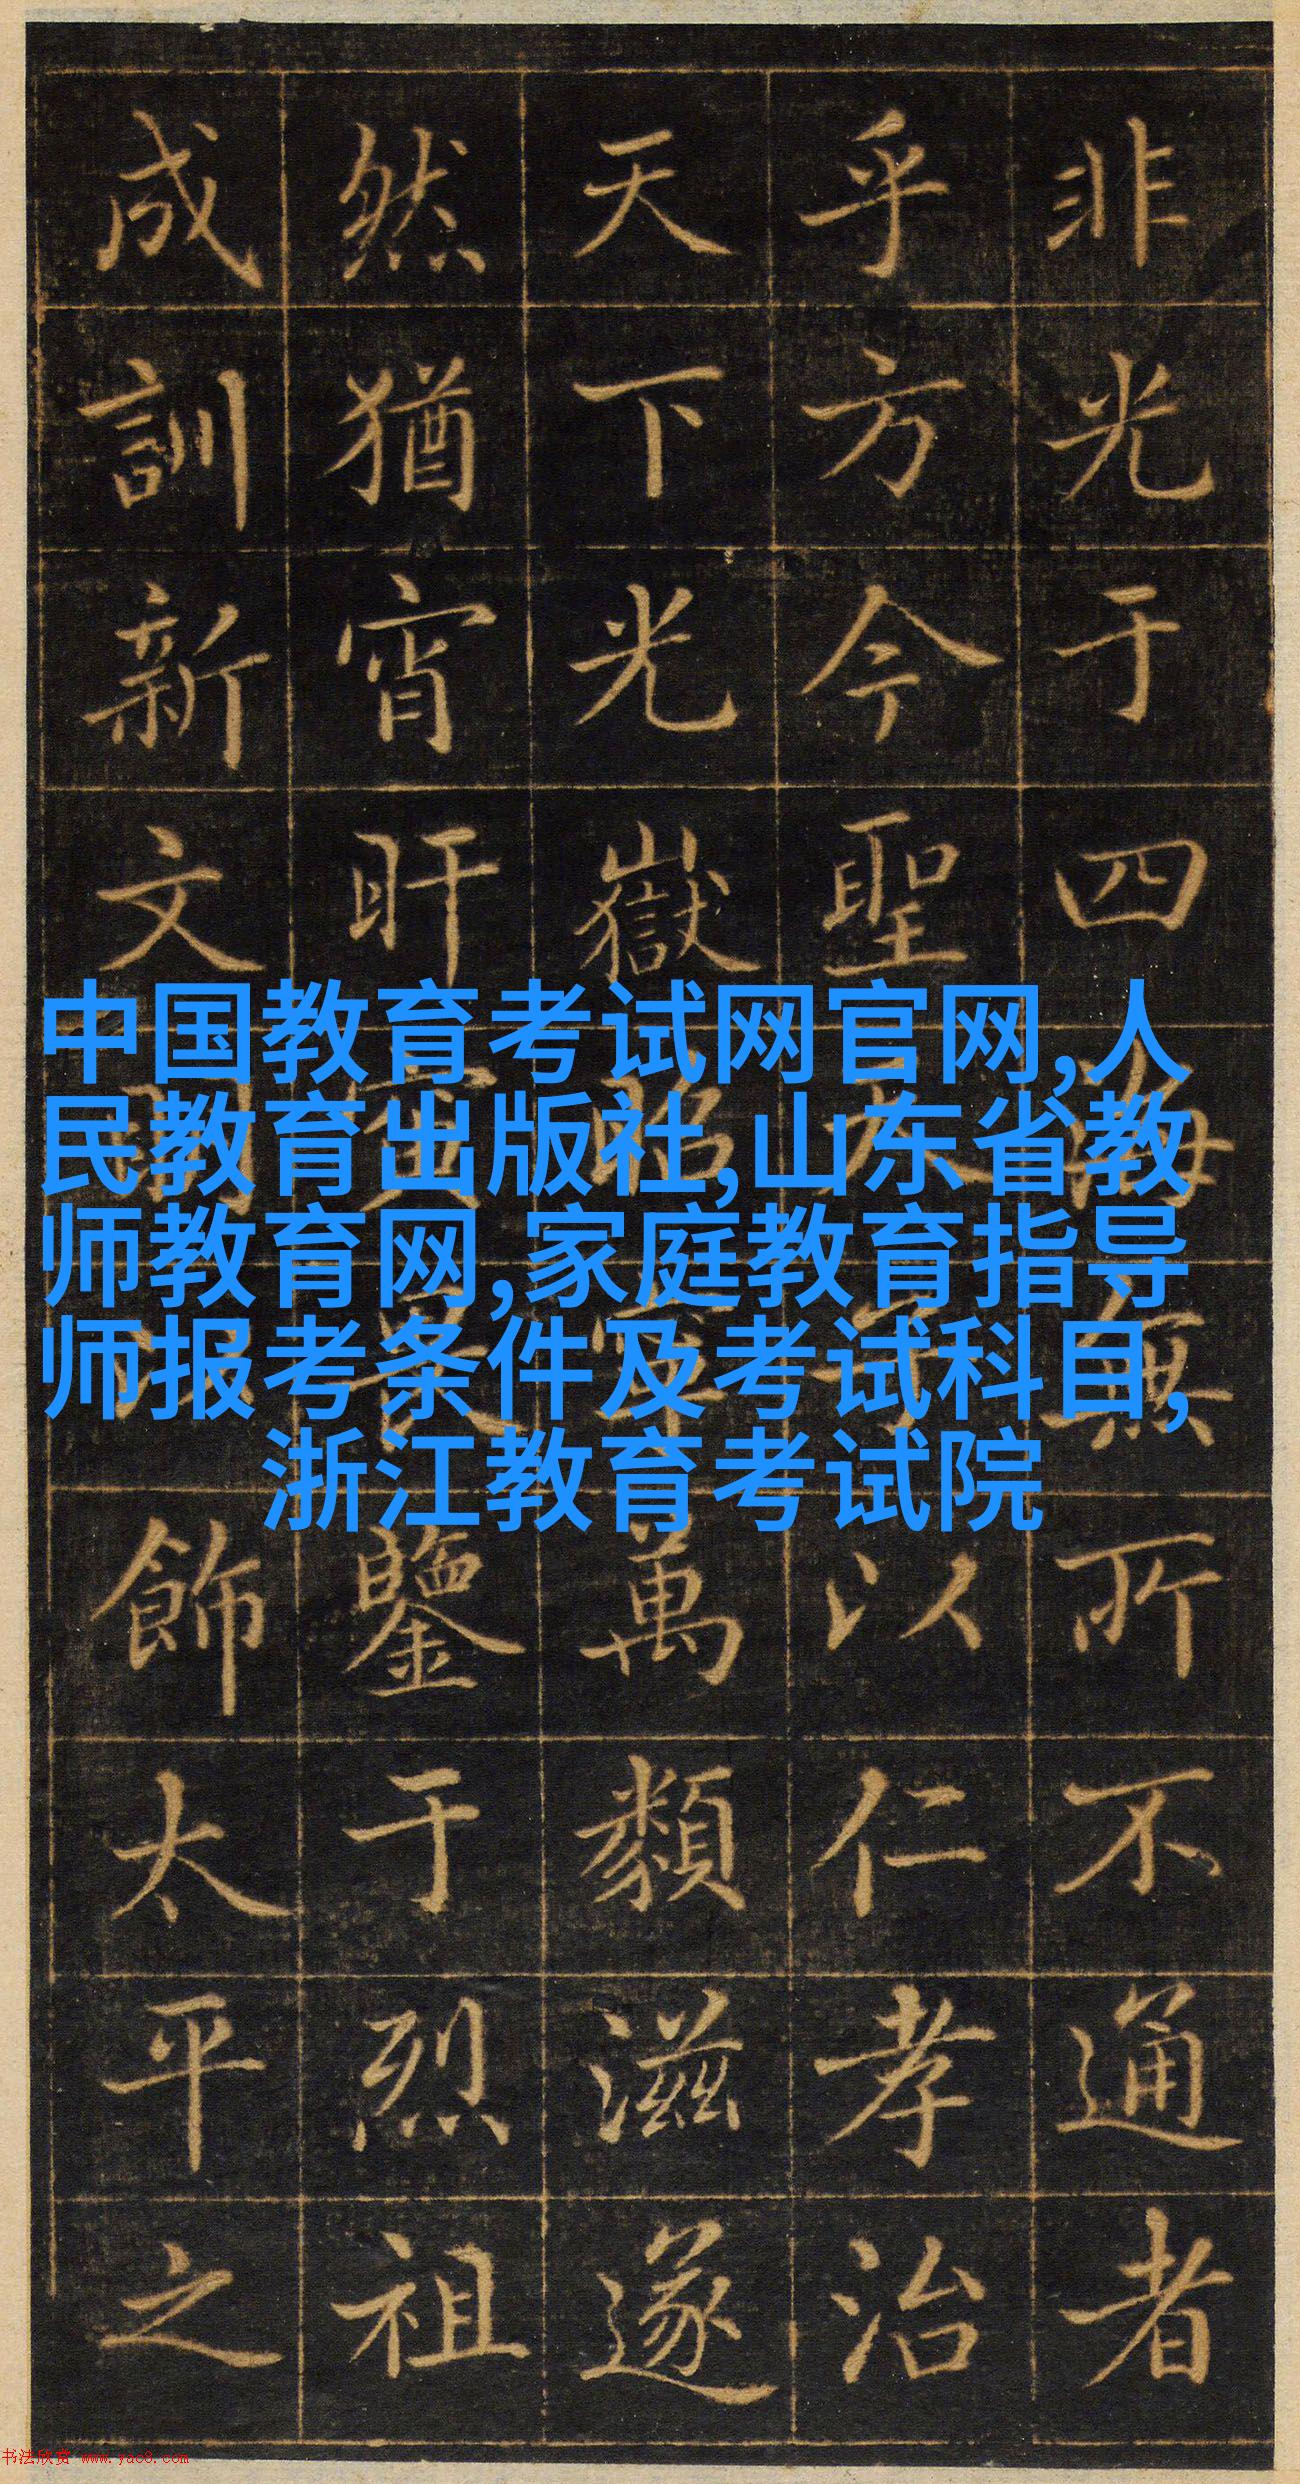 非光于四海無所不通者
乎方今聖以仁孝治
天下光嶽萬類滋遂
然猶宵旰鑒于烈祖
成訓新文飾太平之
中国教育考试网官网,人
民教育出版社,山东省教
师教育网,家庭教育指导
师报考条件及考试科目,
浙江教育考试院
书法欣赏 www.yac8.com